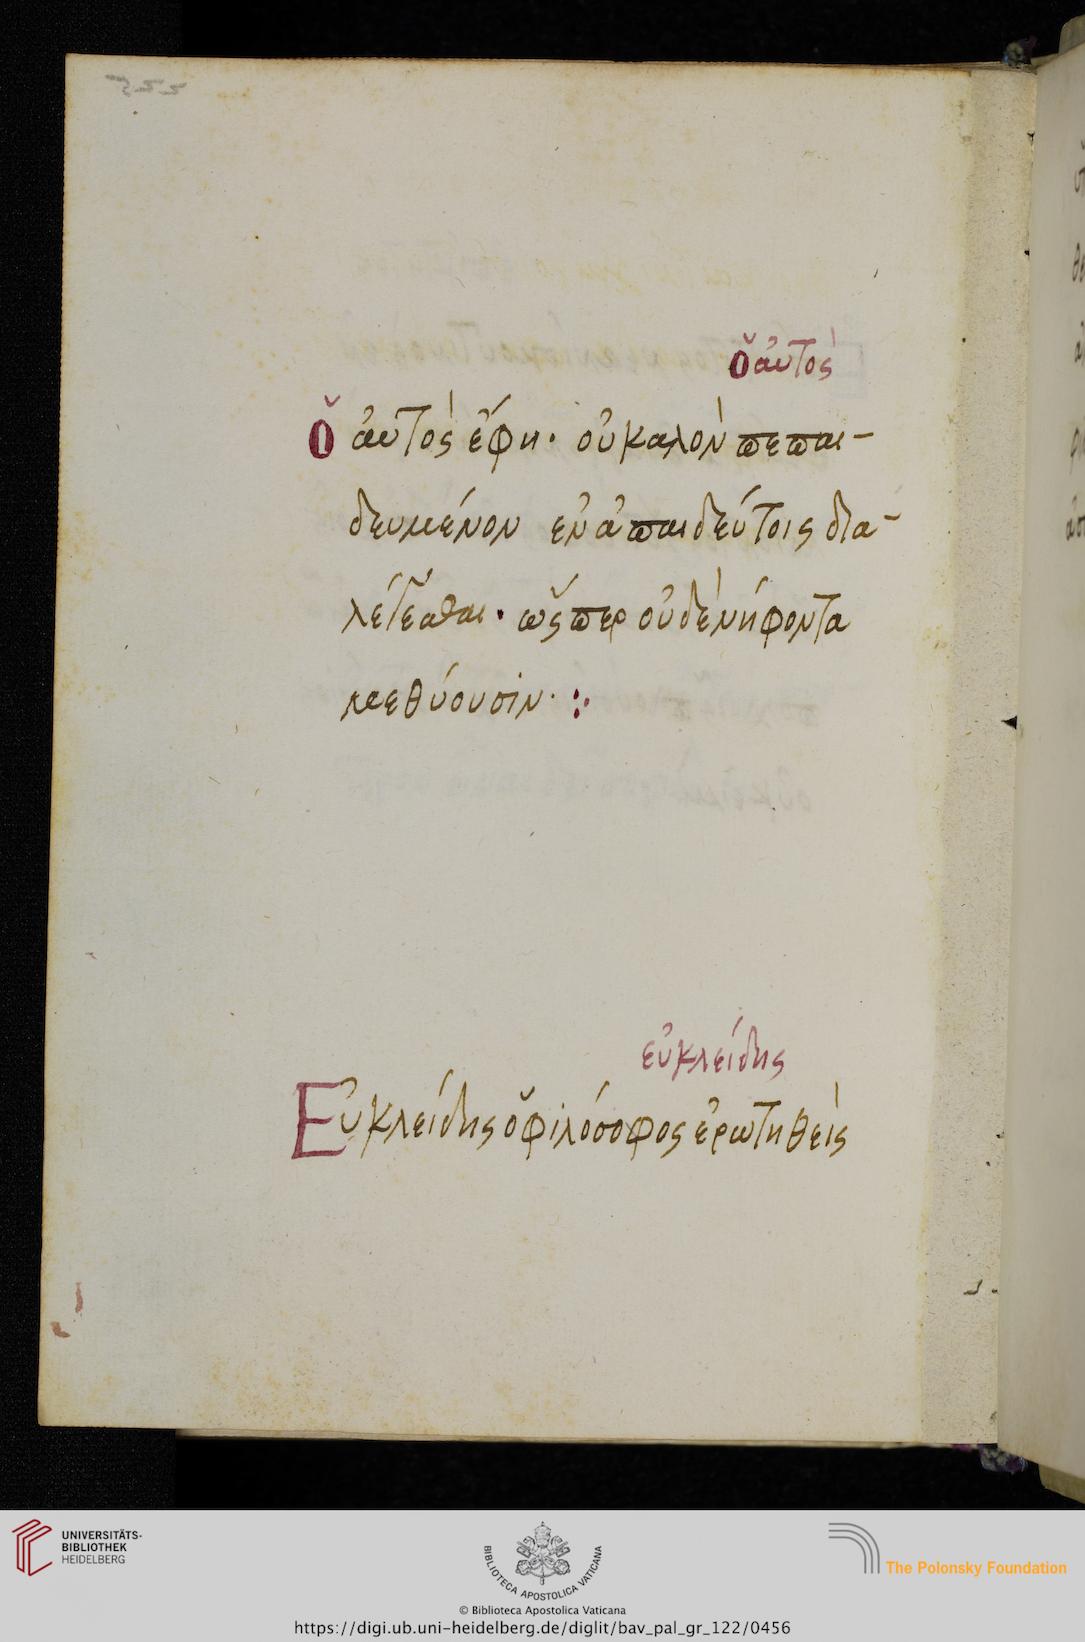 ὁ αὐτὸς
Ὁ αὐτὸς ἔφη· οὐ καλὸν πεπαι-
δευμένον ἐν ἀπαιδεύτοις δια-
λέγεσθαι· ὥσπερ οὐδὲ νήφοντα
μεθύουσιν· :·
εὐκλείδης
Εὐκλείδης ὁ φιλόσοφος ἐρωτηθεὶς
UNIVERSITÄTS-
BIBLIOTHEK
HEIDELBERG
BIBLIOTECA APOSTOLICA VATICANA
The Polonsky Foundation
© Biblioteca Apostolica Vaticana
https://digi.ub.uni-heidelberg.de/diglit/bav_pal_gr_122/0456